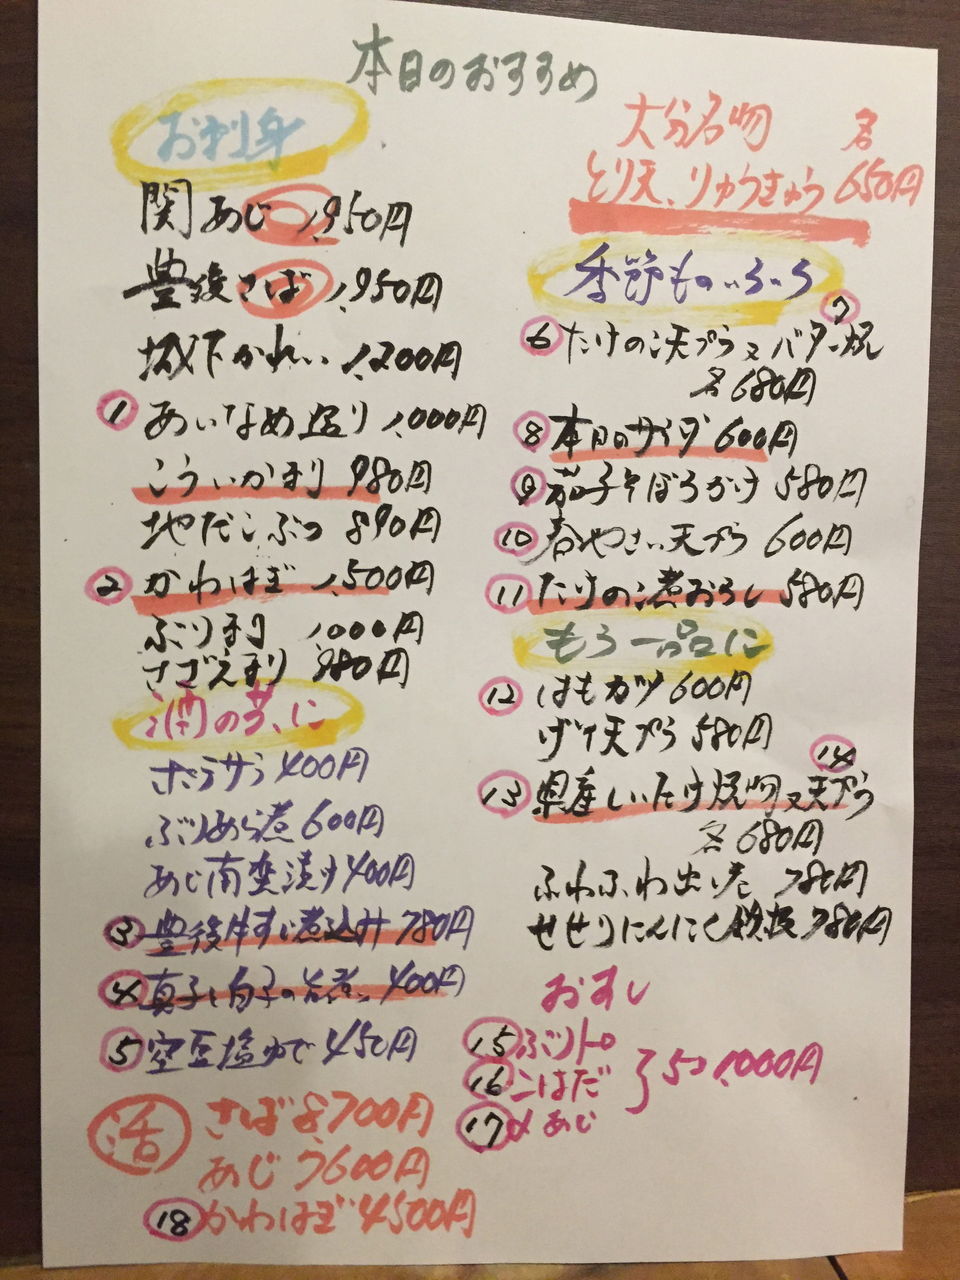 本日のおすすめ
お刺身
関あじ 1,950円
豊後さば 1,950円
城下かれい 1,200円
① あいなめ造り 1,000円
こういか造り 980円
地だこぶつ 890円
② かわはぎ 1,500円
ぶり造り 1,000円
さざえ造り 980円
酒の芽に
ポテサラ 400円
ぶりあら煮 600円
あじ南蛮漬け 400円
③ 豊後牛すじ煮込み 780円
④ 真子と白子の 400円
⑤ 空豆塩ゆで 450円
活 さば 8,700円
あじ 3600円
⑱ かわはぎ 4500円
大分名物 各
とり天、りゅうきゅう 650円
季節ものいろいろ
⑦
⑥ たけのこ天ぷら又バター焼
各680円
⑧ 本日のサラダ 600円
⑨ 茄子そぼろがけ 580円
⑩ 春やさい天ぷら 600円
⑪ たけの煮おろし 580円
もう一品に
⑫ はもカツ 600円
げそ天ぷら 580円
⑭
⑬ 県産しいたけ焼物又天ぷら
各680円
ふわふわ出し巻 780円
せせりにんにく鉄板 780円
おすし
⑮ ぶりトロ
⑯ こはだ
5コ 1,000円
⑰ 〆あじ